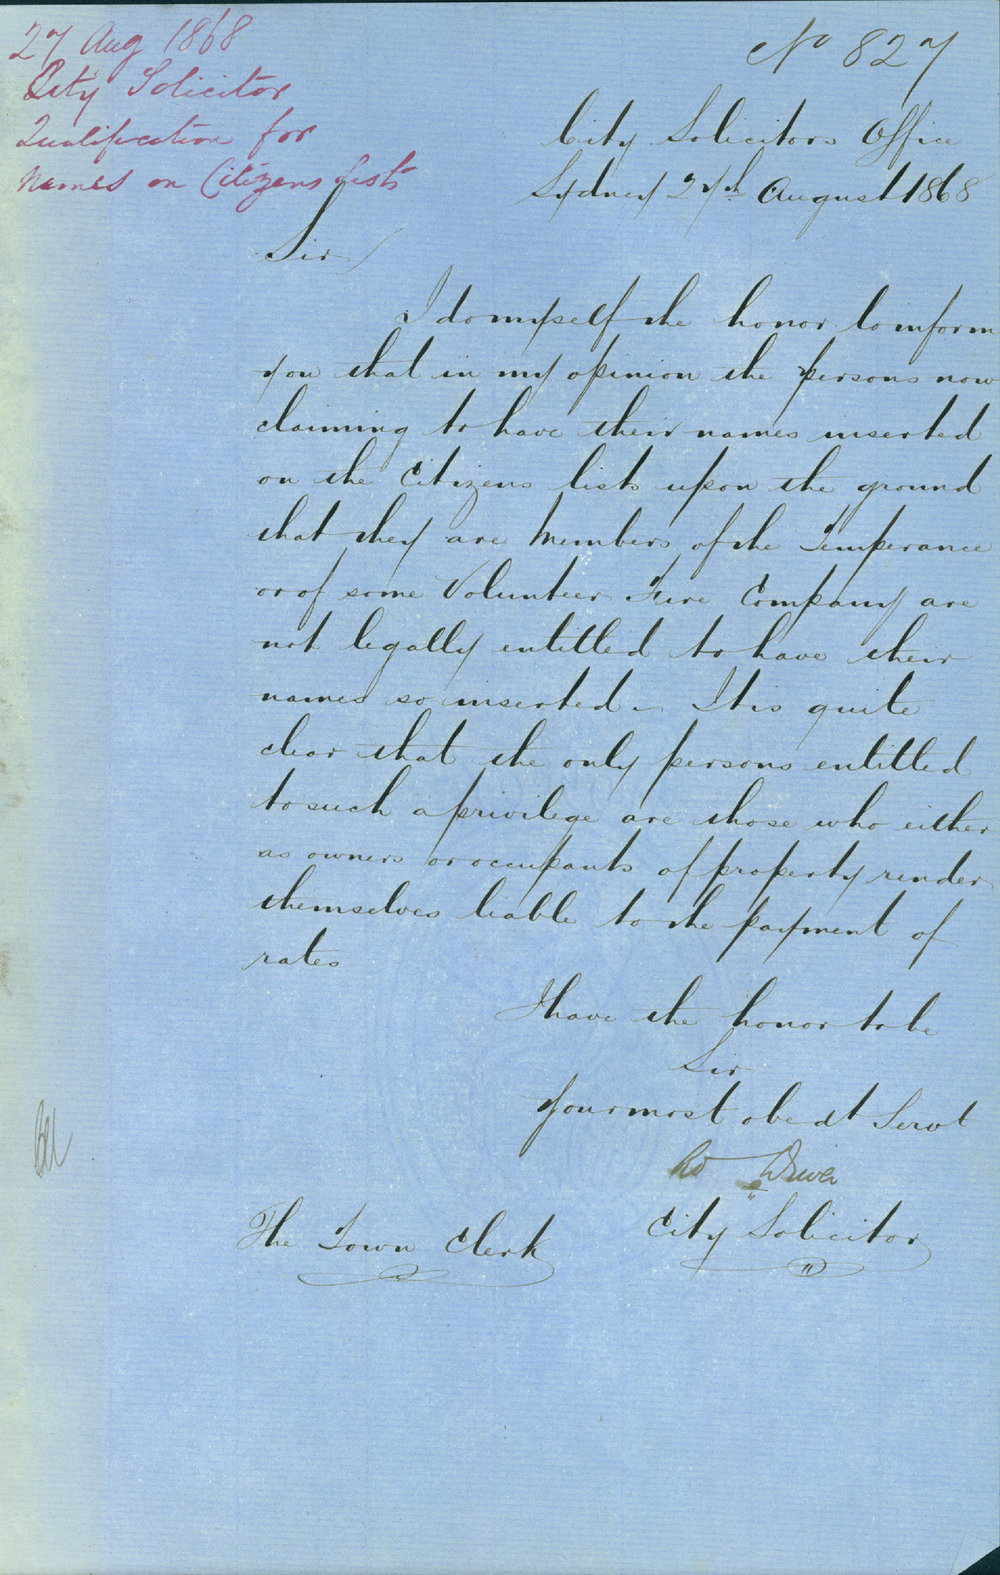 27 Aug 1868
City Solicitor
Qualification for
Names on Citizens Lists
No 827
City Solicitors Office
Sydney 27th August 1868
Sir
I do myself the honor to inform
you that in my opinion the persons now
claiming to have their names inserted
on the Citizens lists upon the ground
that they are Members of the Temperance
or of some Volunteer Fire Company are
not legally entitled to have their
names so inserted. It is quite
clear that the only persons entitled
to such a privilege are those who either
as owners or occupants of property render
themselves liable to the payment of
rates
I have the honor to be
Sir
Your most obedt Servt
Rd Driver
City Solicitor
The Town Clerk